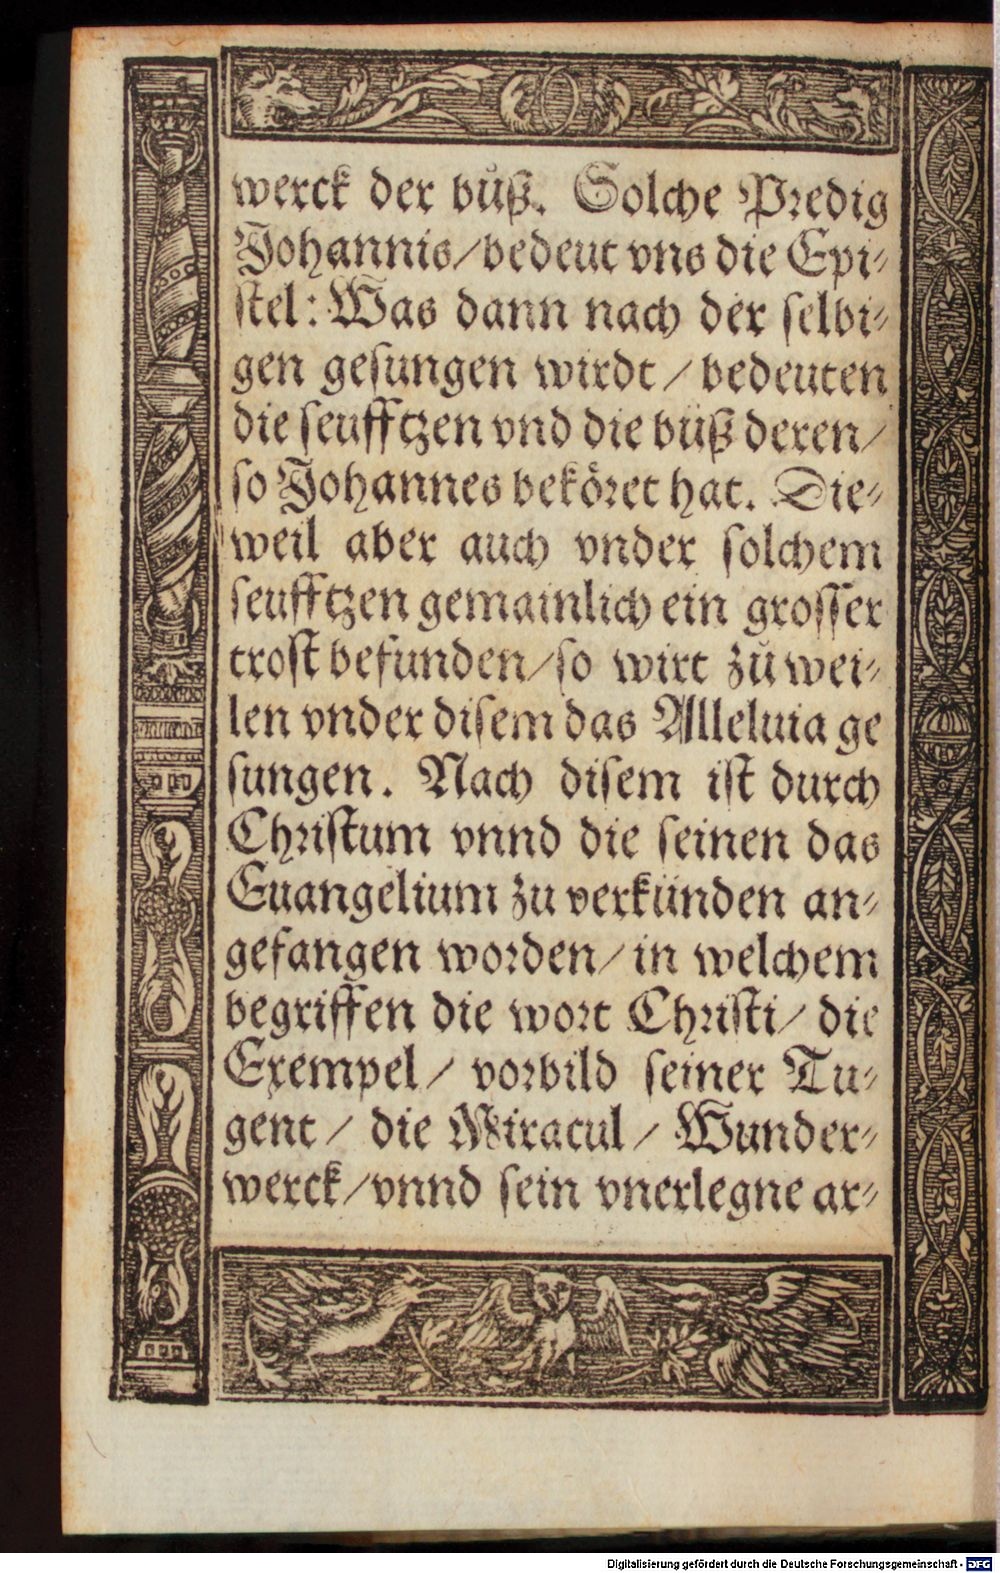 werck der bůß. Solche Predig
Johannis/bedeut vns die Epi⸗
ſtel: Was dann nach der ſelbi⸗
gen geſungen wirdt / bedeuten
die ſeufftzen vnd die bůß deren/
ſo Johannes beköret hat. Die⸗
weil aber auch vnder ſolchem
ſeufftzen gemainlich ein groſſer
troſt befunden/ſo wirt zů wei⸗
len vnder diſem das Alleluia ge
ſungen. Nach diſem iſt durch
Chriſtum vnnd die ſeinen das
Euangelium zu verkünden an⸗
gefangen worden/in welchem
begriffen die wort Chriſti/ die
Exempel/ vorbild ſeiner Tu⸗
gent / die Miracul / Wunder⸗
werck/vnnd ſein vnerlegne ar⸗
Digitalisierung gefördert durch die Deutsche Forschungsgemeinschaft - DFG